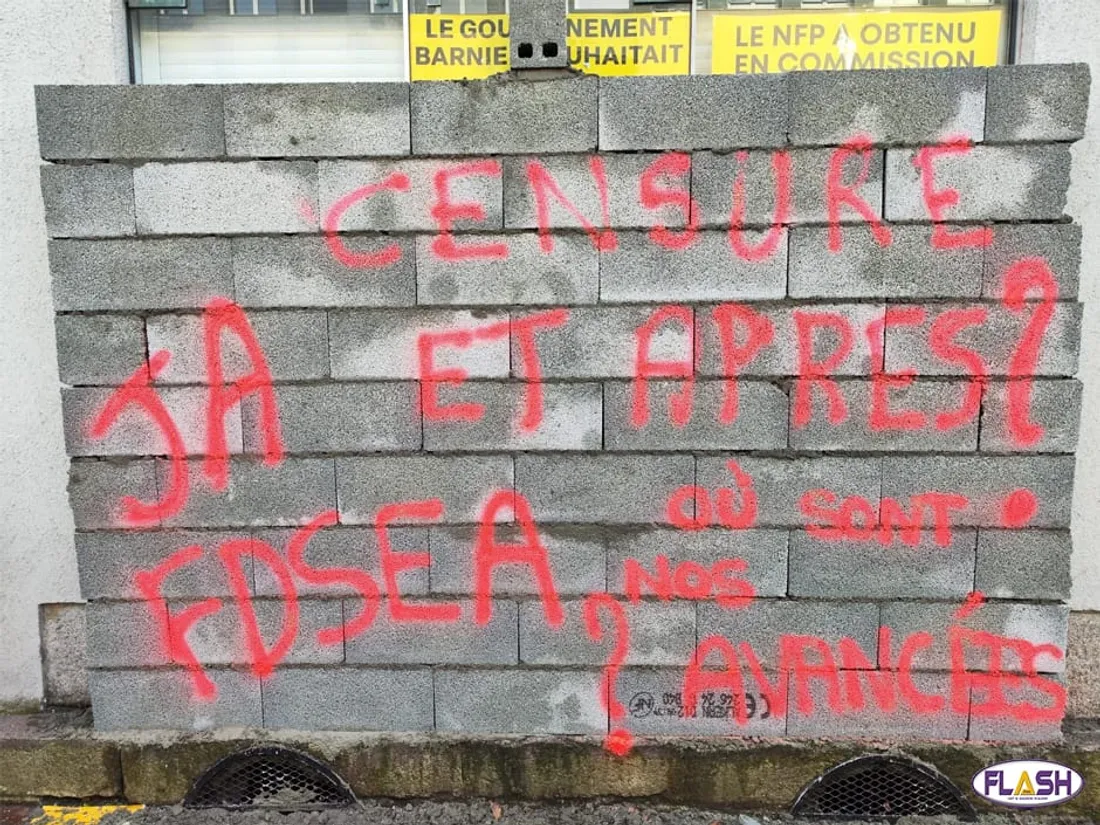 LE GOU NEMENT
BARNIE UHAITAIT
LE NFP A OBTENU
EN COMMISSION
CENSURE
ET APRES ?
JA
FDSEA
OÙ SONT
NOS
AVANCÉES
?
FLASH